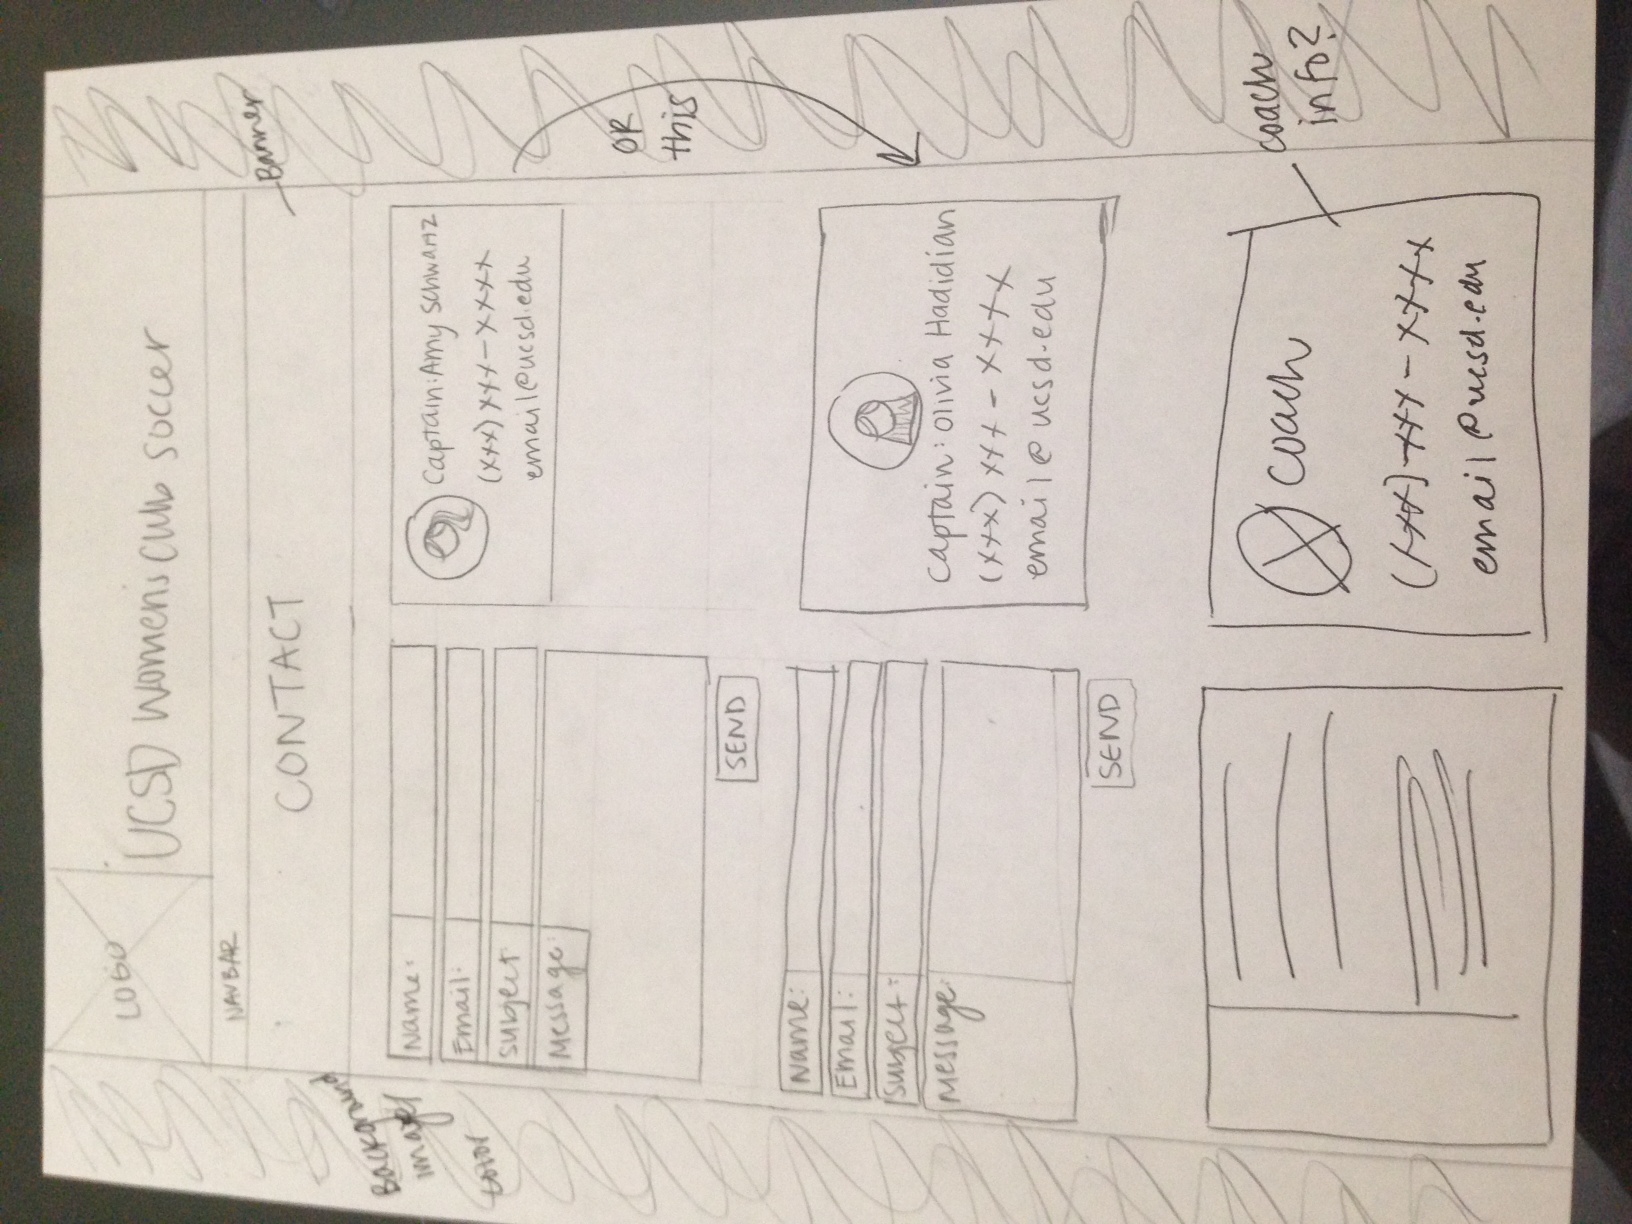 LOGO
UCSD Women's Club Soccer
NAVBAR
CONTACT
Banner
Background
image/
color
Name:
Email:
Subject:
Message:
SEND
Captain: Amy Schwartz
(xxx) xxx-xxxx
email@ucsd.edu
OR
this
Name:
Email:
Subject:
Message:
SEND
Captain: Olivia Hadidian
(xxx) xxx-xxxx
email@ucsd.edu
Coach
(xxx)-xxx-xxxx
email@ucsd.edu
coach
info?